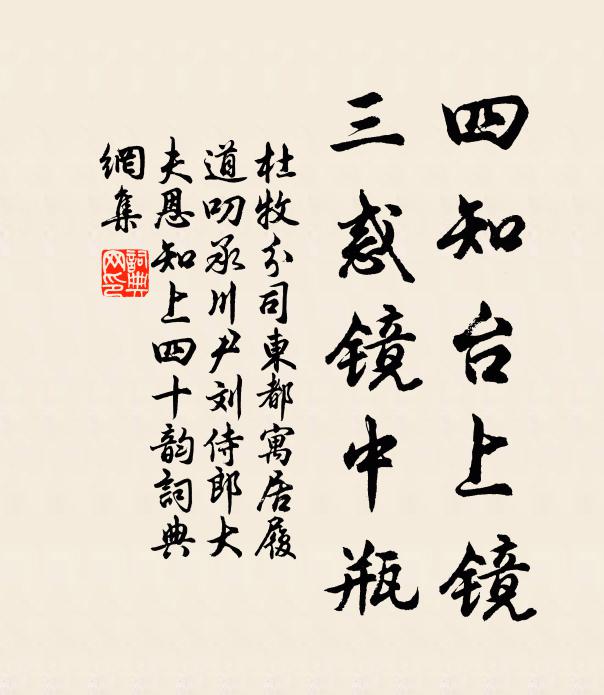 四知台上镜
三惑镜中瓶
杜牧分司東都寓居履
道叨承川尹刘侍郎大
夫恩知上四十韵詞典
網集
詞典网印